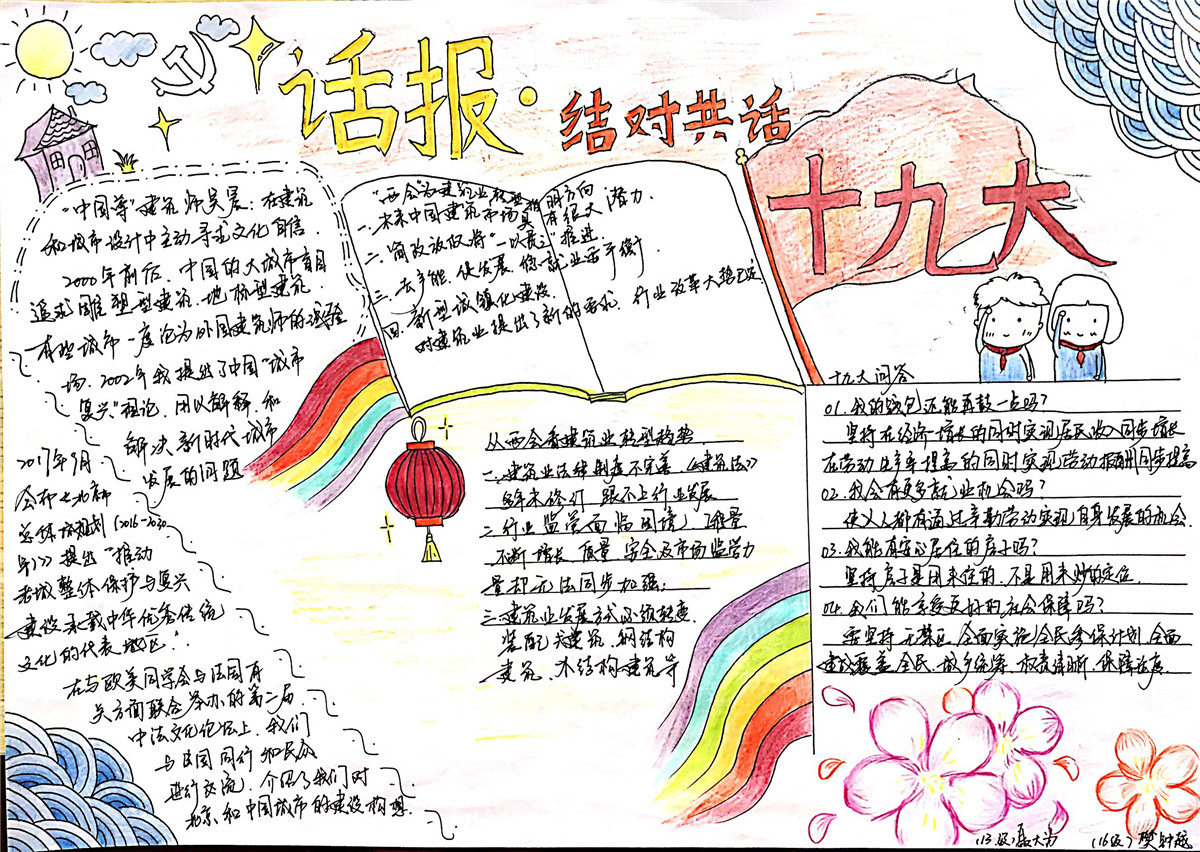 话报·
结对共话
十九大
"中国尊"建筑师吴晨：在建筑
和城市设计中主动寻求文化自信.
2000年前后，中国的大城市盲目
追求雕塑型建筑、地标型建筑
有些城市一度沦为外国建筑师的试验
场. 2002年我提出了中国"城市
复兴"理论，用以解释、和
解决新时代城市
发展的问题
2017年9月
公布
总体规划(2016-2030
年)》提出"推动
老城整体保护与复兴
建设承载中华优秀传统
文化的代表地区".
在与欧美同学会与法国有
关方面联合举办的第二届
中法文化论坛上，我们
与法国同行和民众
进行交流，介绍了我们对
北京和中国城市的建设构想.
"两会"为建筑业转型指明方向
一、未来中国建筑市场具有很大潜力.
二、简政放权将"一以贯之"推进.
三、去产能、促发展、稳就业要平衡
四、新型城镇化建设
对建筑业提出了新的要求. 行业改革大势已定
从两会看建筑业转型趋势.
一.建筑业法律制度不完善.《建筑法》
多年未修订 跟不上行业发展
二.行业监管面临困境，工程量
不断增长 质量、安全及市场监管力
量却无法同步加强;
三.建筑业发展方式必须转变.
装配式建筑、钢结构
建筑、木结构建筑等
十九大问答
01.我的钱包还能再鼓一点吗?
坚持在经济增长的同时实现居民收入同步增长
在劳动生产率提高的同时实现劳动报酬同步提高
02.我会有更多就业机会吗?
使人人都有通过辛勤劳动实现自身发展的机会.
03.我能有安心居住的房子吗?
坚持房子是用来住的、不是用来炒的定位.
04.我们能享受更好的社会保障吗?
要坚持 全面实施全民参保计划.全面
建成覆盖全民、城乡统筹、权责清晰、保障适度.
(13级)聂大为
(16级)樊钟越